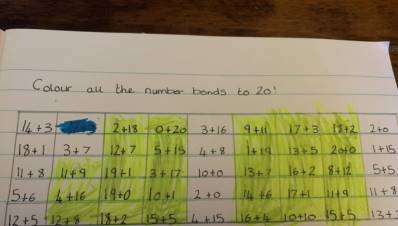 Colour all the number bonds to 20!
14+3 2+18 0+20 3+16 9+11 17+3 18+2 2+0
18+1 3+7 12+7 5+15 4+8 1+19 13+5 20+0 1+15
11+8 11+9 19+1 3+17 10+0 13+7 16+2 8+12 5+5
5+6 4+16 19+0 10+1 2+0 14+6 17+1 11+9 11+8
12+5 12+8 18+2 15+5 4+15 16+4 10+10 15+5